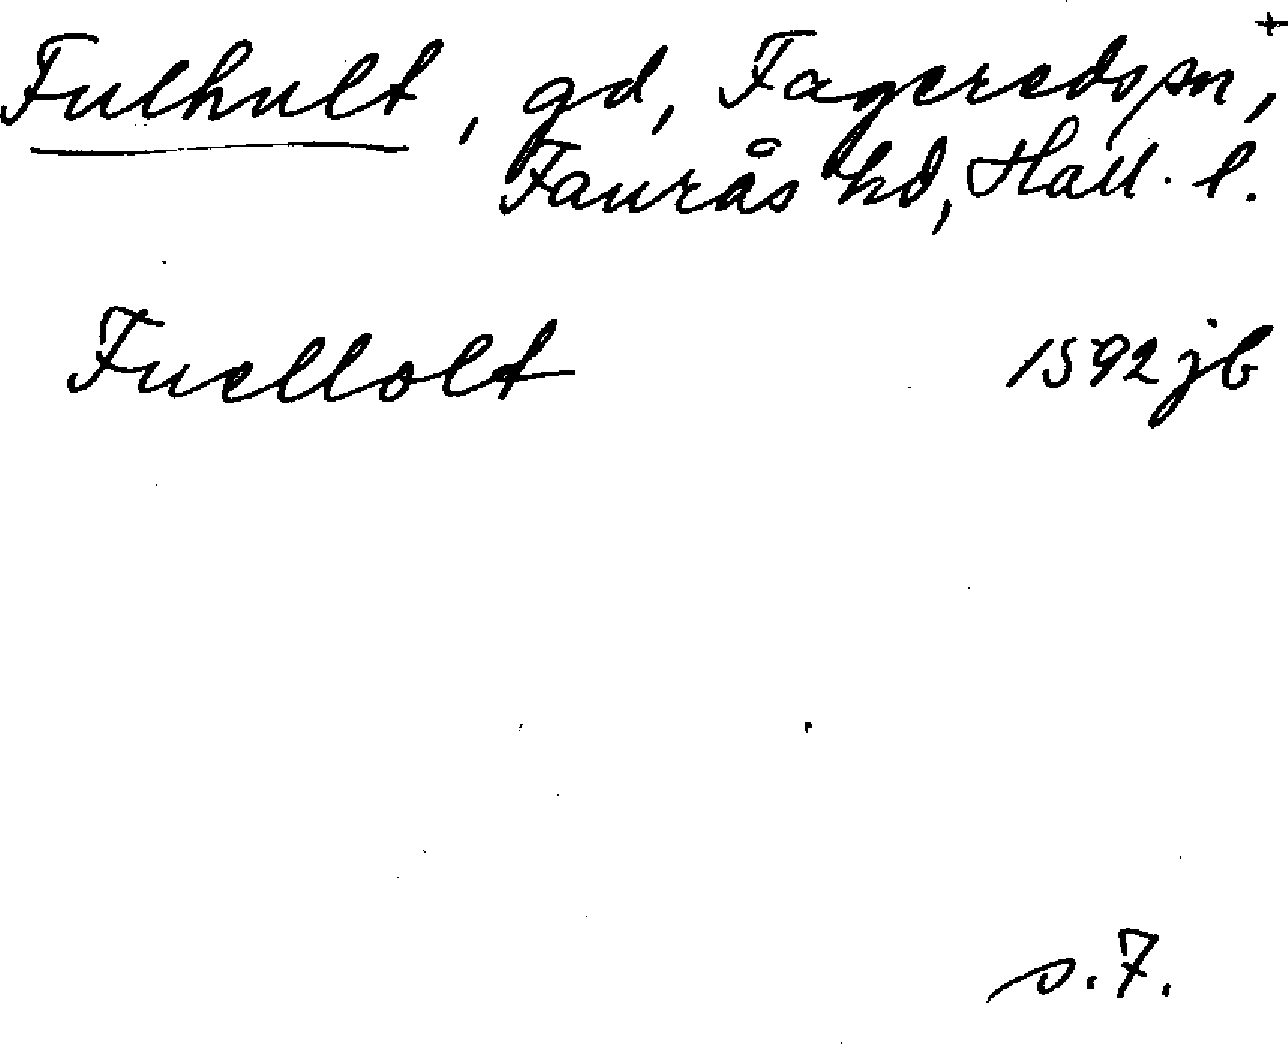 +
Fulhult, gd, Fagereds sn,
Faurås hd, Hall. l.
Fuellolt 1592 jb
s. 7.